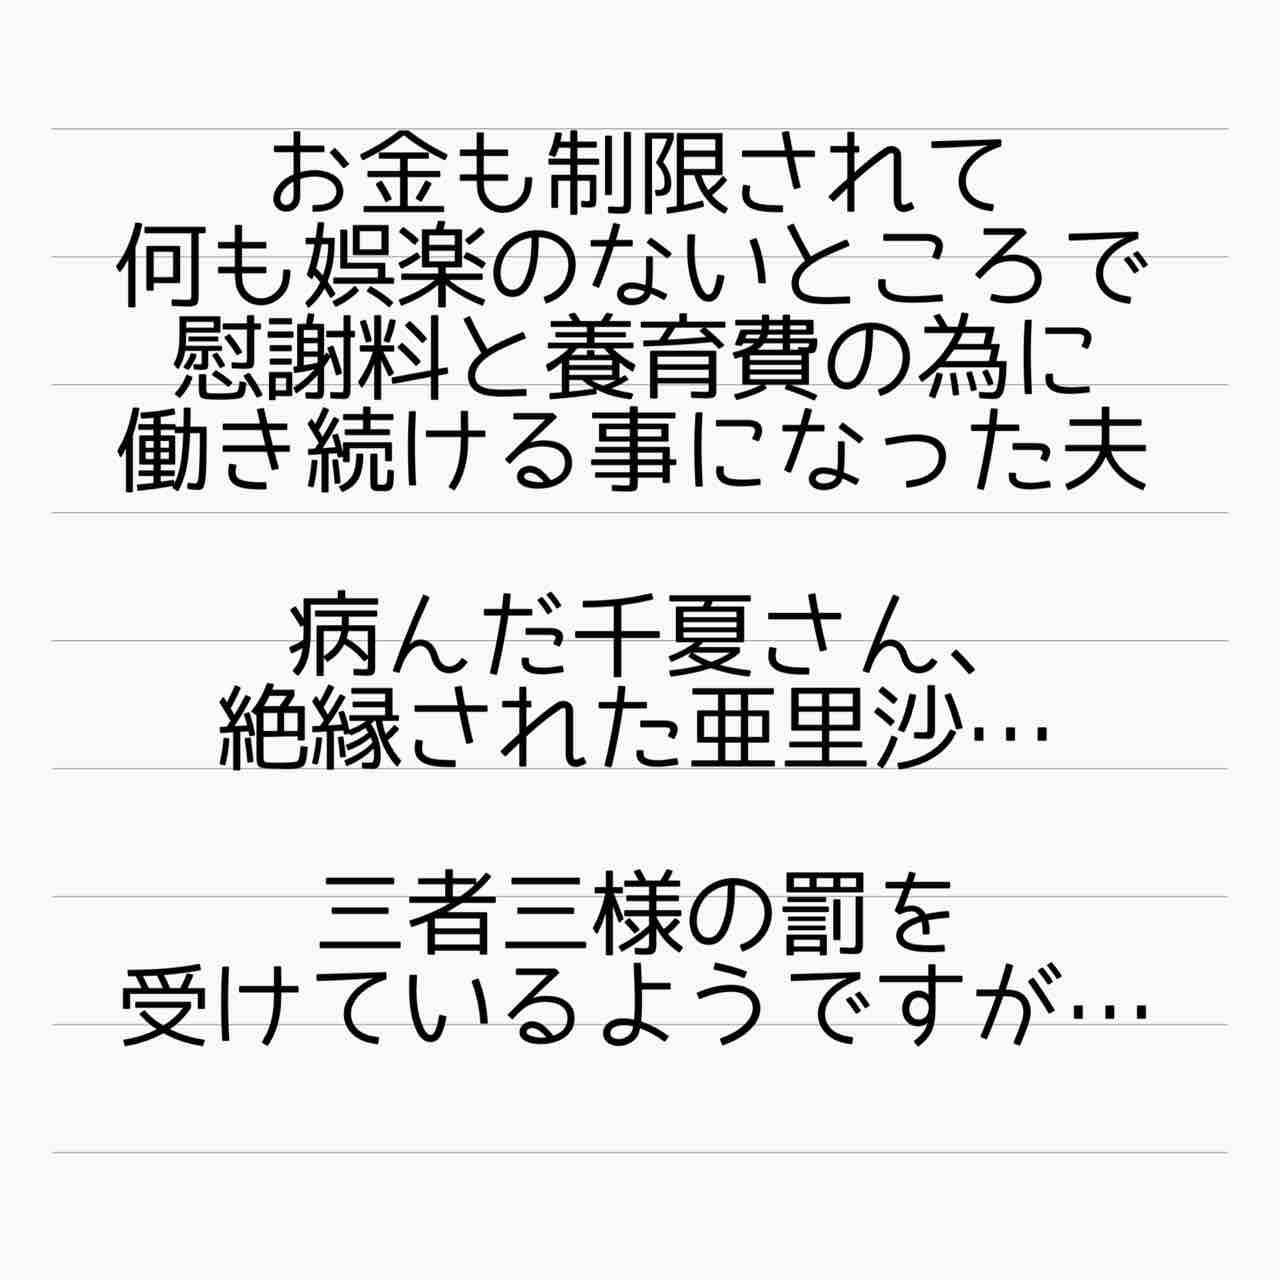 お金も制限されて
何も娯楽のないところで
慰謝料と養育費の為に
働き続ける事になった夫
病んだ千夏さん、
絶縁された亜里沙…
三者三様の罰を
受けているようですが…